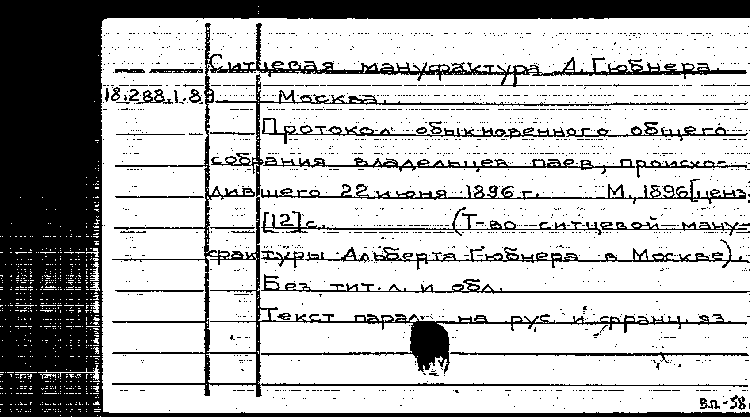 Ситцевая мануфактура А. Гюбнера.
18.288.1.89 Москва.
Протокол обыкновенного общего
собрания владельцев паев, происхо-
дившего 22 июня 1896 г. М., 1896[ценз.
[12]с. (Т-во ситцевой ману-
фактуры Альберта Гюбнера в Москве).
Без тит. л. и обл.
Текст парал. на рус. и франц. яз.
ВЛ-58